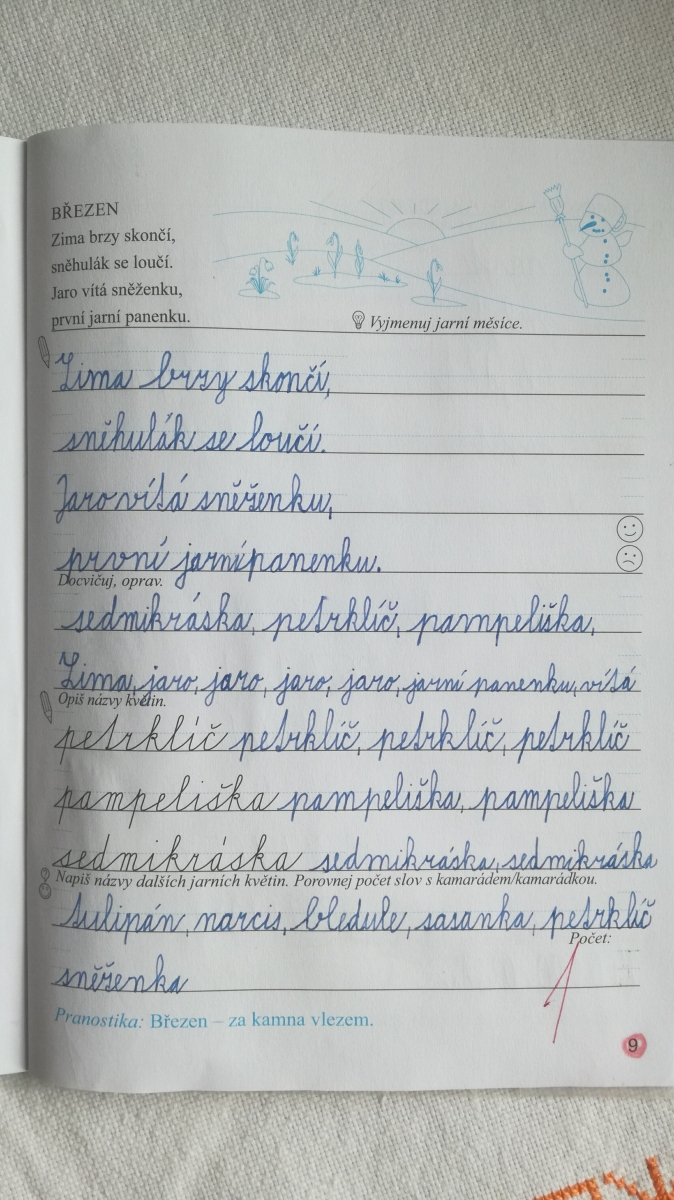 BŘEZEN
Zima brzy skončí,
sněhulák se loučí.
Jaro vítá sněženku,
první jarní panenku.
Vyjmenuj jarní měsíce.
Zima brzy skončí,
sněhulák se loučí.
Jaro vítá sněženku,
první jarní panenku.
Docvičuj, oprav.
sedmikráska, petrklíč, pampeliška,
Zima, jaro, jaro, jaro, jaro, jarní panenku, vítá
Opiš názvy květin.
petrklíč petrklíč, petrklíč, petrklíč
pampeliška pampeliška, pampeliška
sedmikráska sedmikráska, sedmikráska
Napiš názvy dalších jarních květin. Porovnej počet slov s kamarádem/kamarádkou.
tulipán, narcis, bledule, sasanka, petrklíč
Počet:
sněženka
1
Pranostika: Březen – za kamna vlezem.
9